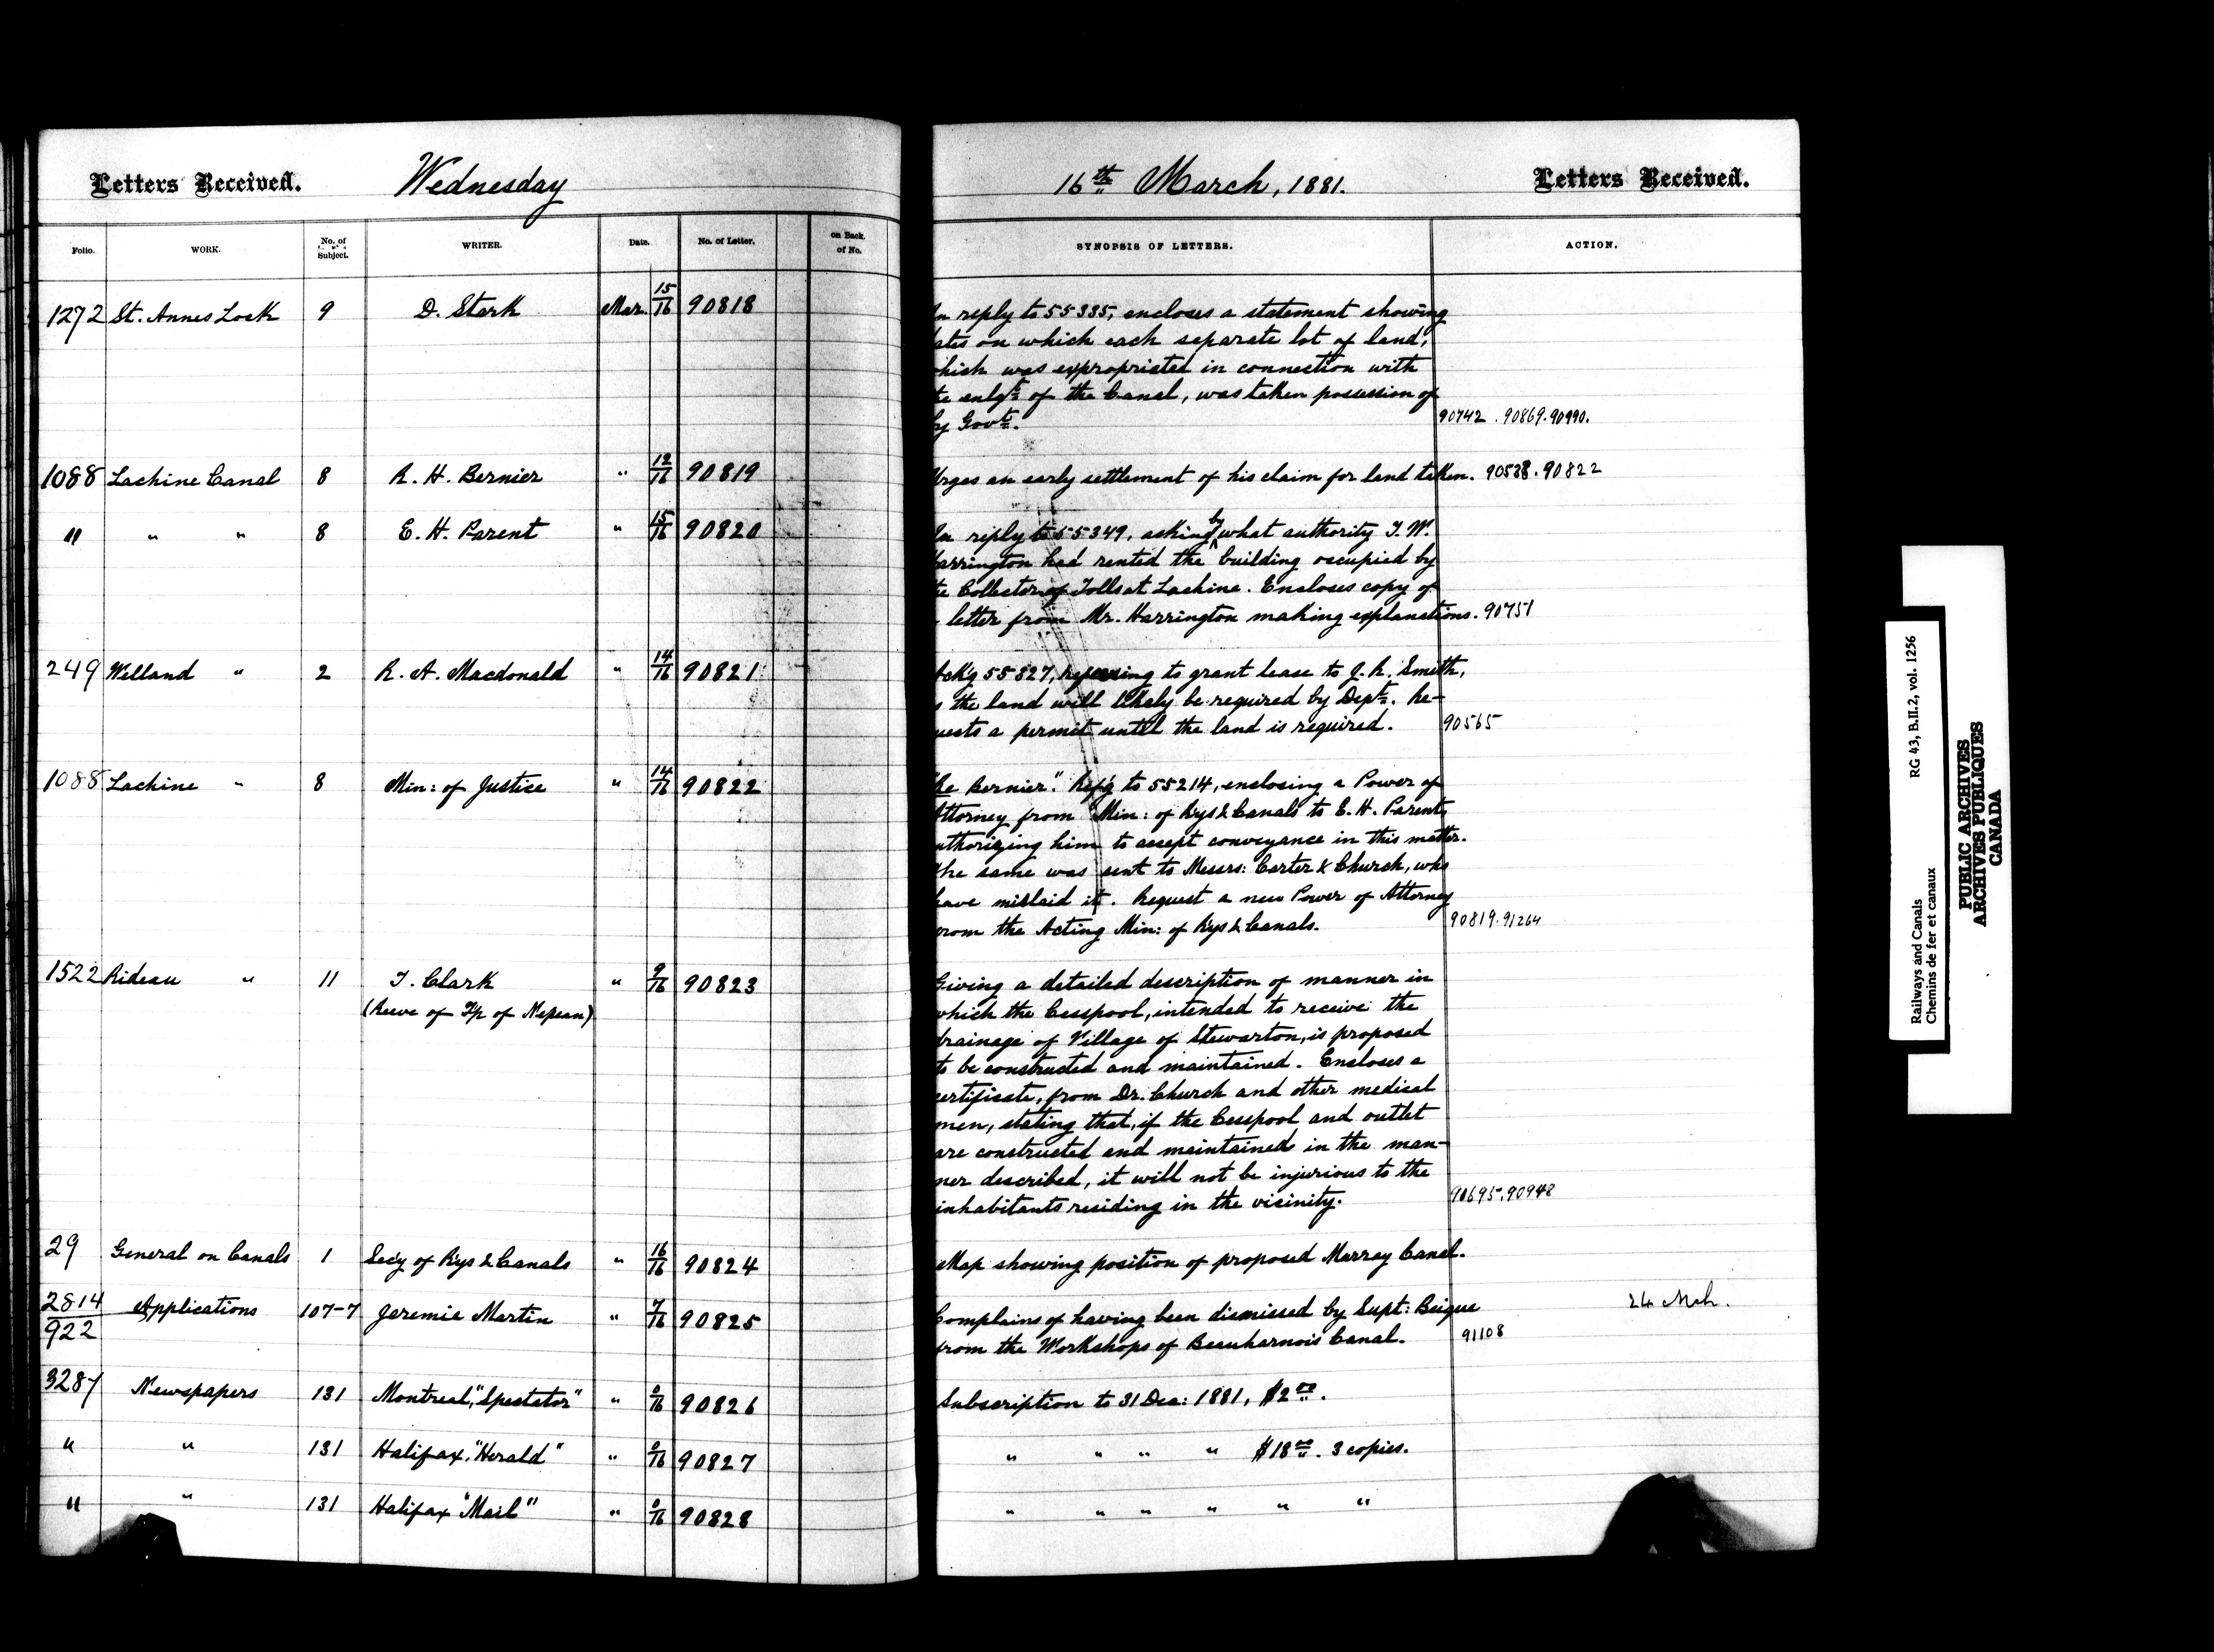 Letters Received. Wednesday
16th March, 1881. Letters Received.
Folio. WORK. No. of Subject. WRITER. Date. No. of Letter. on Back. of No.
SYNOPSIS OF LETTERS. ACTION.
1272 St. Annes Lock 9 D. Stark Mar. 15/16 90818
In reply to 55335, encloses a statement showing
ates on which each separate lot of land,
hich was expropriated in connection with
he enlgt of the Canal, was taken possession of
by Govt. 90742 . 90869. 90990.
1088 Lachine Canal 8 R. H. Bernier " 12/16 90819
Urges an early settlement of his claim for land taken. 90538. 90822
" " " 8 E. H. Parent " 15/16 90820
In reply to 55349, asking by what authority T. W.
arrington had rented the building occupied by
he Collector of Tolls at Lachine. Encloses copy of
letter from Mr. Harrington making explanations. 90751
249 Welland " 2 R. A. Macdonald " 14/16 90821
Ack'g 55327, refusing to grant lease to J. R. Smith,
s the land will likely be required by Dept. Re-
uests a permit until the land is required. 90565
1088 Lachine " 8 Min: of Justice " 14/16 90822
Re Bernier". Ref'g to 55214, enclosing a Power of
Attorney from Min: of Rys & Canals to E. H. Parent,
uthorizing him to accept conveyance in this matter.
The same was sent to Messrs: Carter & Church, who
have mislaid it. Request a new Power of Attorney
rom the Acting Min: of Rys & Canals. 90819. 91264
1522 Rideau " 11 T. Clark " 9/16 90823
(Reeve of Tp of Nepean)
Giving a detailed description of manner in
which the Cesspool, intended to receive the
drainage of Village of Stewarton, is proposed
to be constructed and maintained. Encloses a
certificate, from Dr. Church and other medical
men, stating that, if the Cesspool and outlet
are constructed and maintained in the man-
ner described, it will not be injurious to the
inhabitants residing in the vicinity. 90695. 90948
29 General on Canals 1 Secy of Rys & Canals " 16/16 90824
Map showing position of proposed Murray Canal.
2814/922 Applications 107-7 Jeremie Martin " 7/16 90825
Complains of having been dismissed by Supt: Beique 24 Mch.
from the Workshops of Beauharnois Canal. 91108
3287 Newspapers 131 Montreal, "Spectator" " 0/16 90826
Subscription to 31 Dec: 1881, $2 00.
" " 131 Halifax, "Herald" " 0/16 90827
" " " " $18 00. 3 copies.
" " 131 Halifax "Mail" " 0/16 90828
" " " " " "
RG 43, B.II.2, vol. 1256
Railways and Canals
Chemins de fer et canaux
PUBLIC ARCHIVES
ARCHIVES PUBLIQUES
CANADA